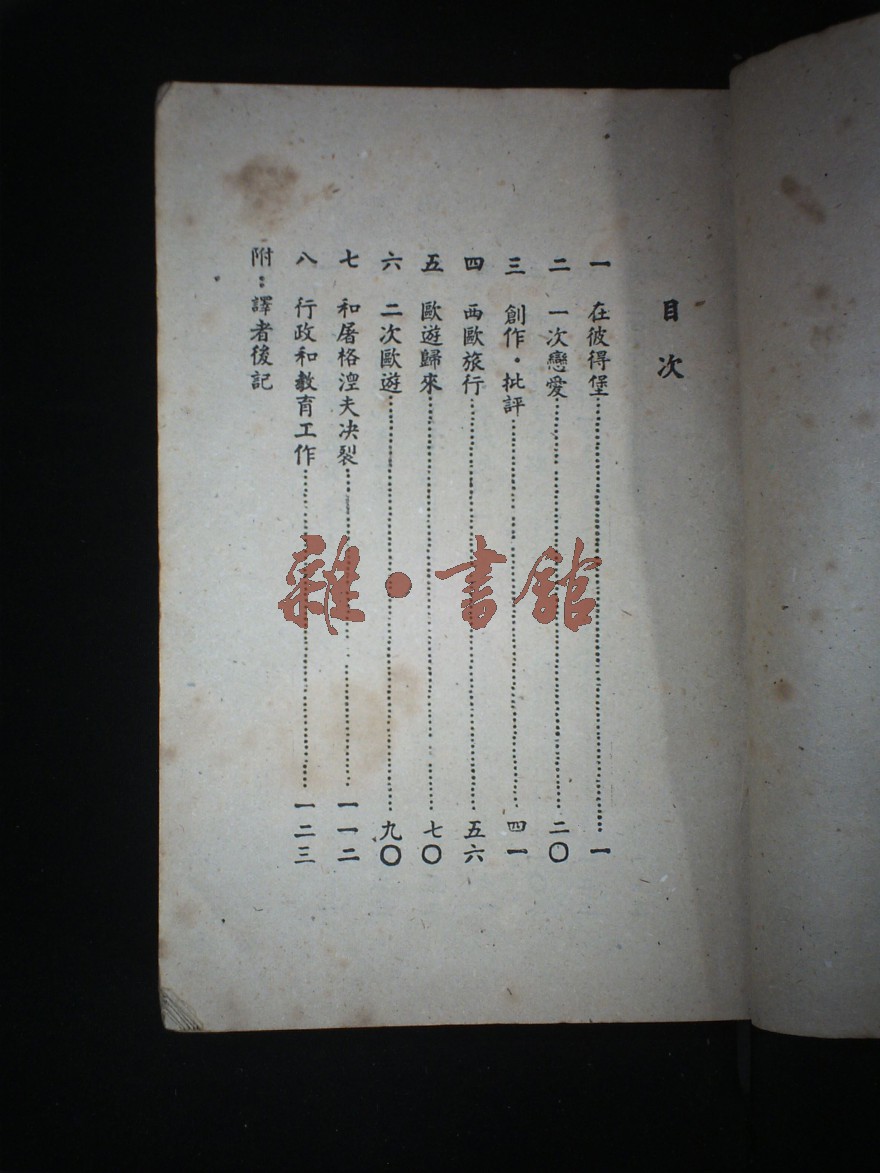 目次
一 在彼得堡…………一
二 一次戀愛…………二〇
三 創作・批評…………四一
四 西歐旅行…………五六
五 歐遊歸來…………七〇
六 二次歐遊…………九〇
七 和屠格涅夫決裂…………一一二
八 行政和教育工作…………一二三
附：譯者後記
雜・書館